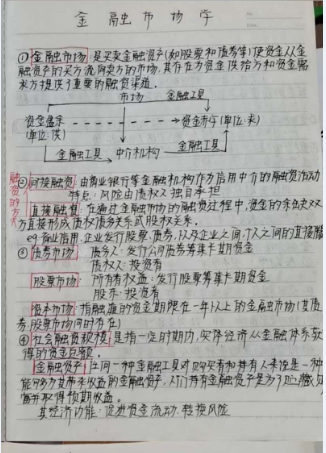 金融市场学
①金融市场是买卖金融资产(如股票和债券等)使资金从金
融资产的买方流向卖方的市场,其存在为资金供给方和资金需
求方提供了重要的融资渠道。
市场 金融工具
资金盈余 资金赤字(单位:求)
(单位:供)
金融工具 中介机构 金融工具
融资的方式
②间接融资:由商业银行等金融机构作为信用中介的融资活动
特点:风险由债权人独自承担
直接融资:在通过金融市场的融资过程中,资金的余缺双
方直接形成债权债务关系或股权关系。
eg.商业信用,企业发行股票、债券,以及企业之间、个人之间的直接
③债券市场:债务人:发行公司债券筹集长期资金
债权人:投资者
股票市场:所有者权益:发行股票筹集长期资金
股东:投资者
资本市场:指融通的资金期限在一年以上的金融市场(其债
券、股票市场同时存在)
④社会融资规模:是指一定时期内,实体经济从金融体系获
得的资金总额。
金融资产:任何一种金融工具对购买者和持有人来说是一种
能够为其带来收益的金融资产,人们持有金融资产是为了
并取得预期收益。
其经济功能:促进资金流动,转移风险